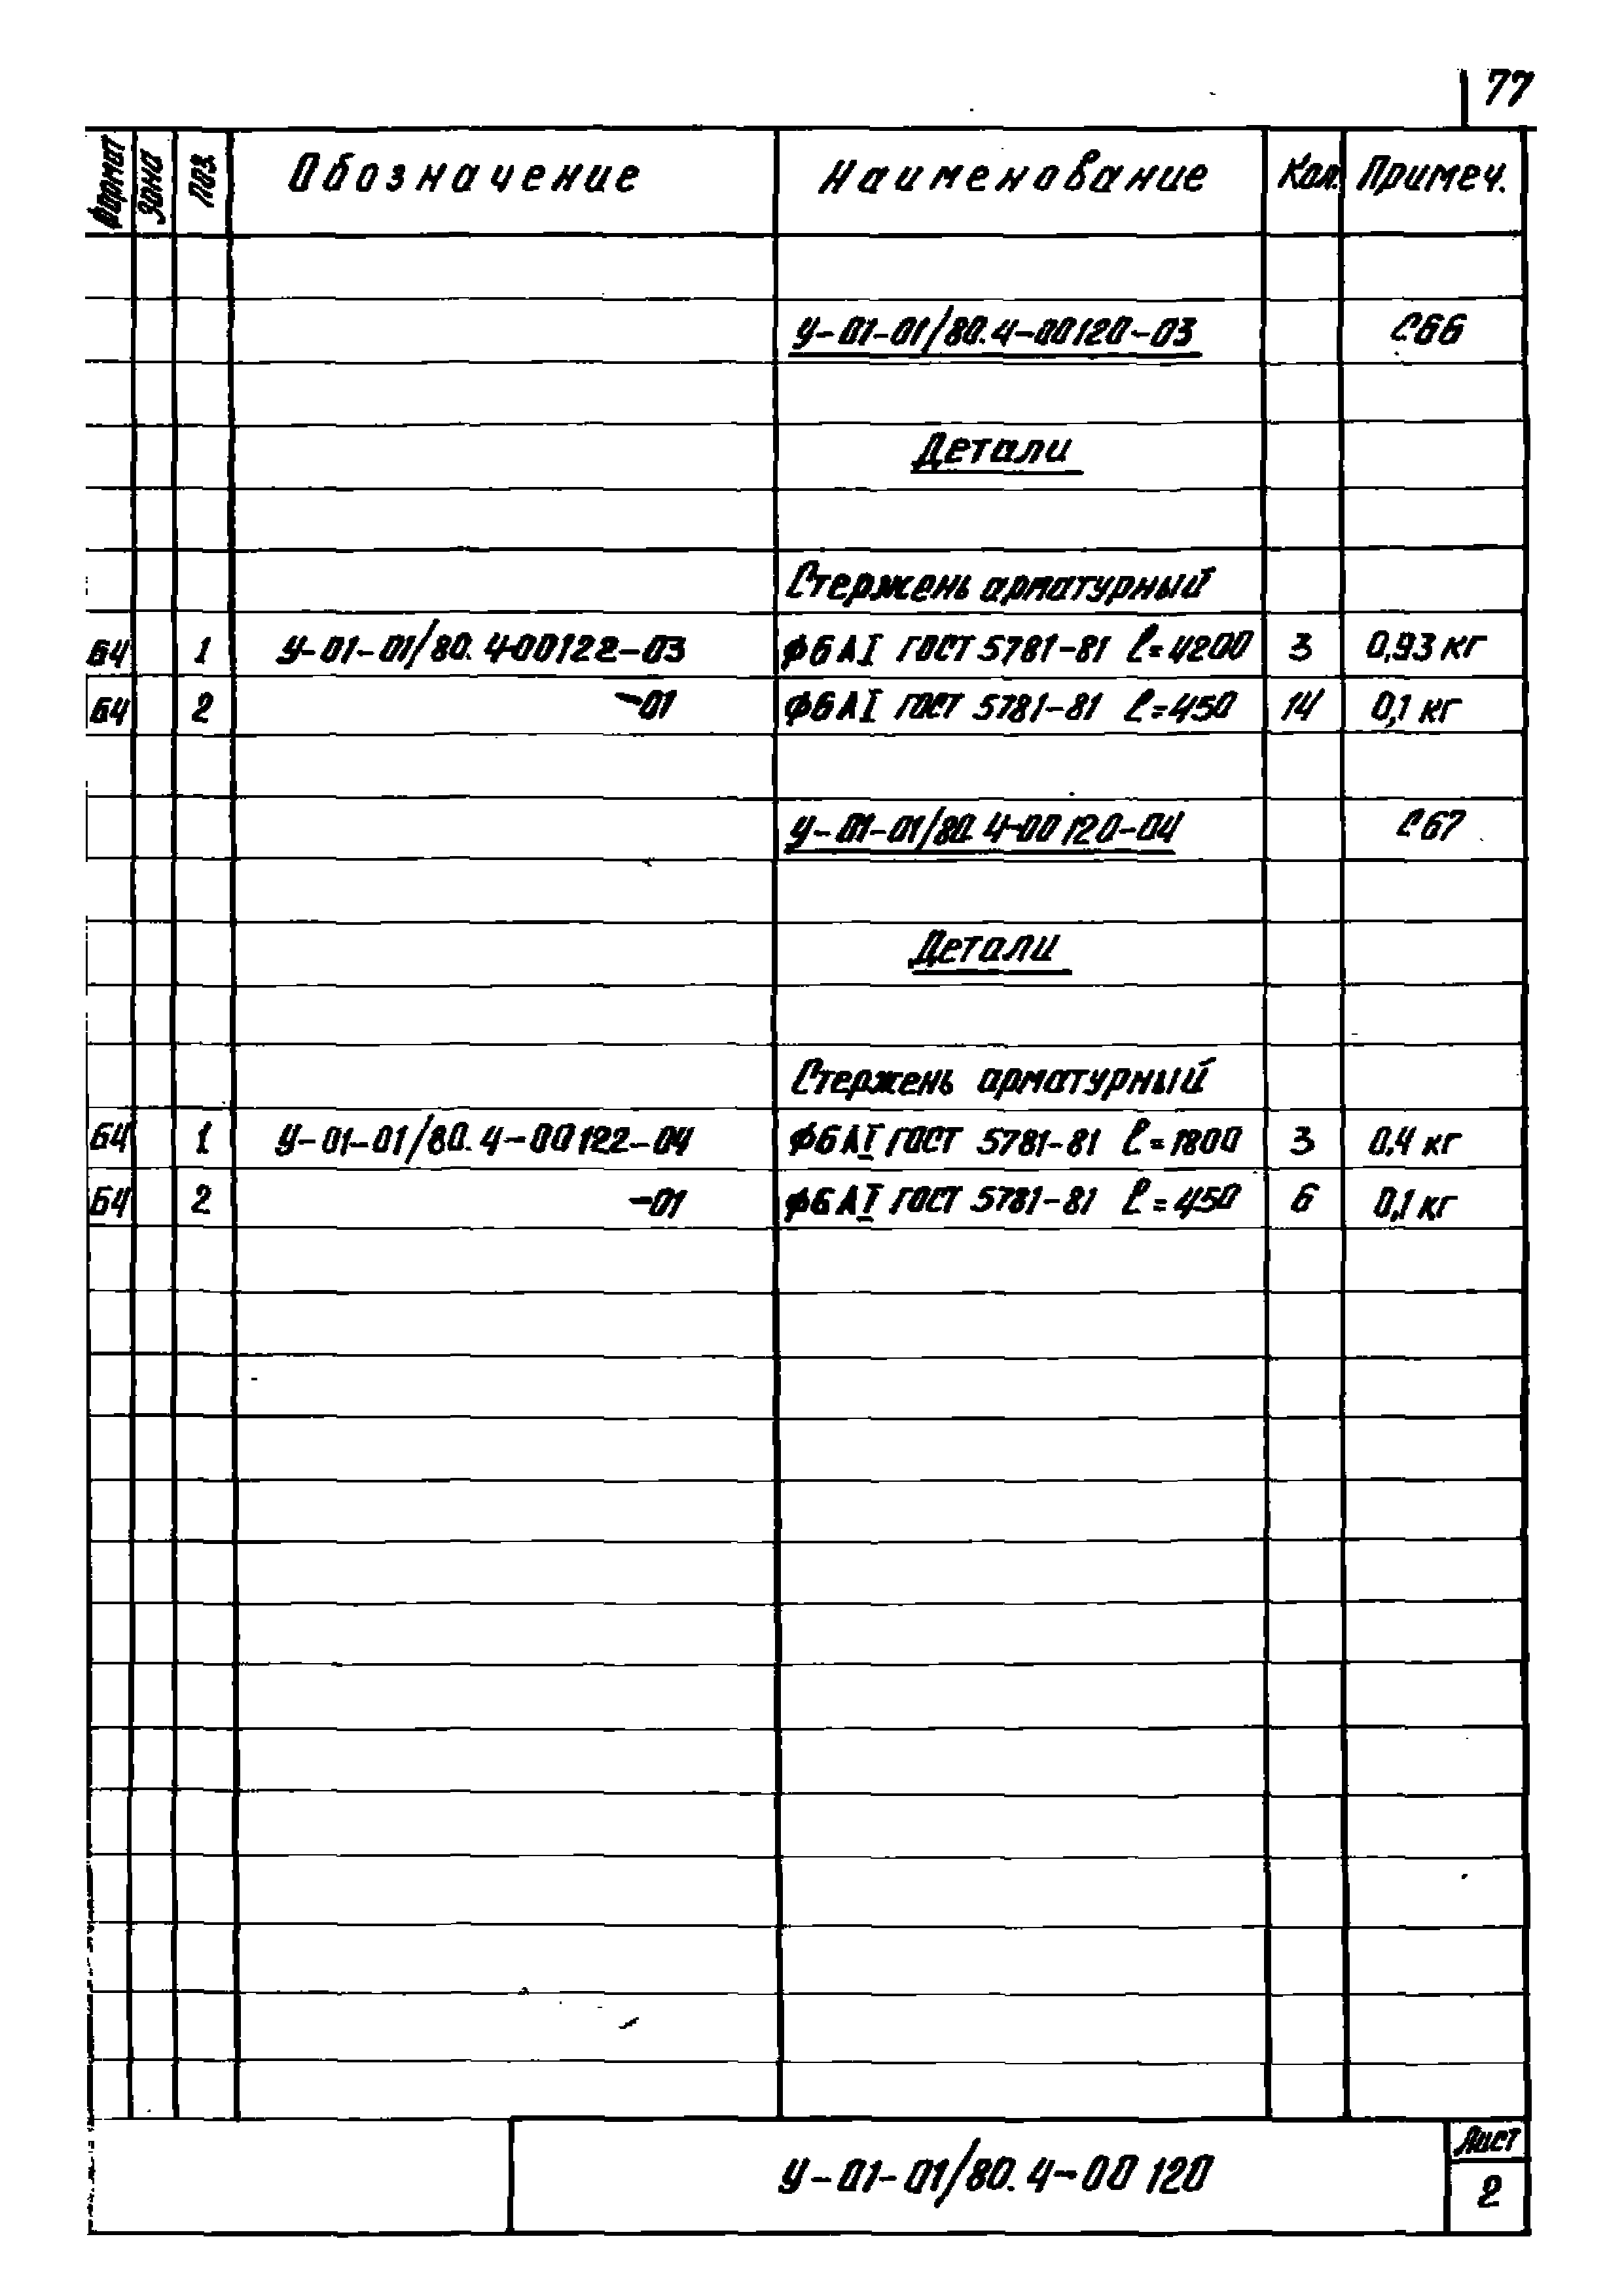 77
Формат Зона Поз. Обозначение Наименование Кол. Примеч.
У-01-01/80.4-00120-03 С66
Детали
Стержень арматурный
БЧ 1 У-01-01/80.4-00122-03 ϕ6АI ГОСТ 5781-81 ℓ=4200 3 0,93 кг
БЧ 2 -01 ϕ6АI ГОСТ 5781-81 ℓ=450 14 0,1 кг
У-01-01/80.4-00120-04 С67
Детали
Стержень арматурный
БЧ 1 У-01-01/80.4-00122-04 ϕ6АI ГОСТ 5781-81 ℓ=1800 3 0,4 кг
БЧ 2 -01 ϕ6АI ГОСТ 5781-81 ℓ=450 6 0,1 кг
У-01-01/80.4-00120
Лист
2